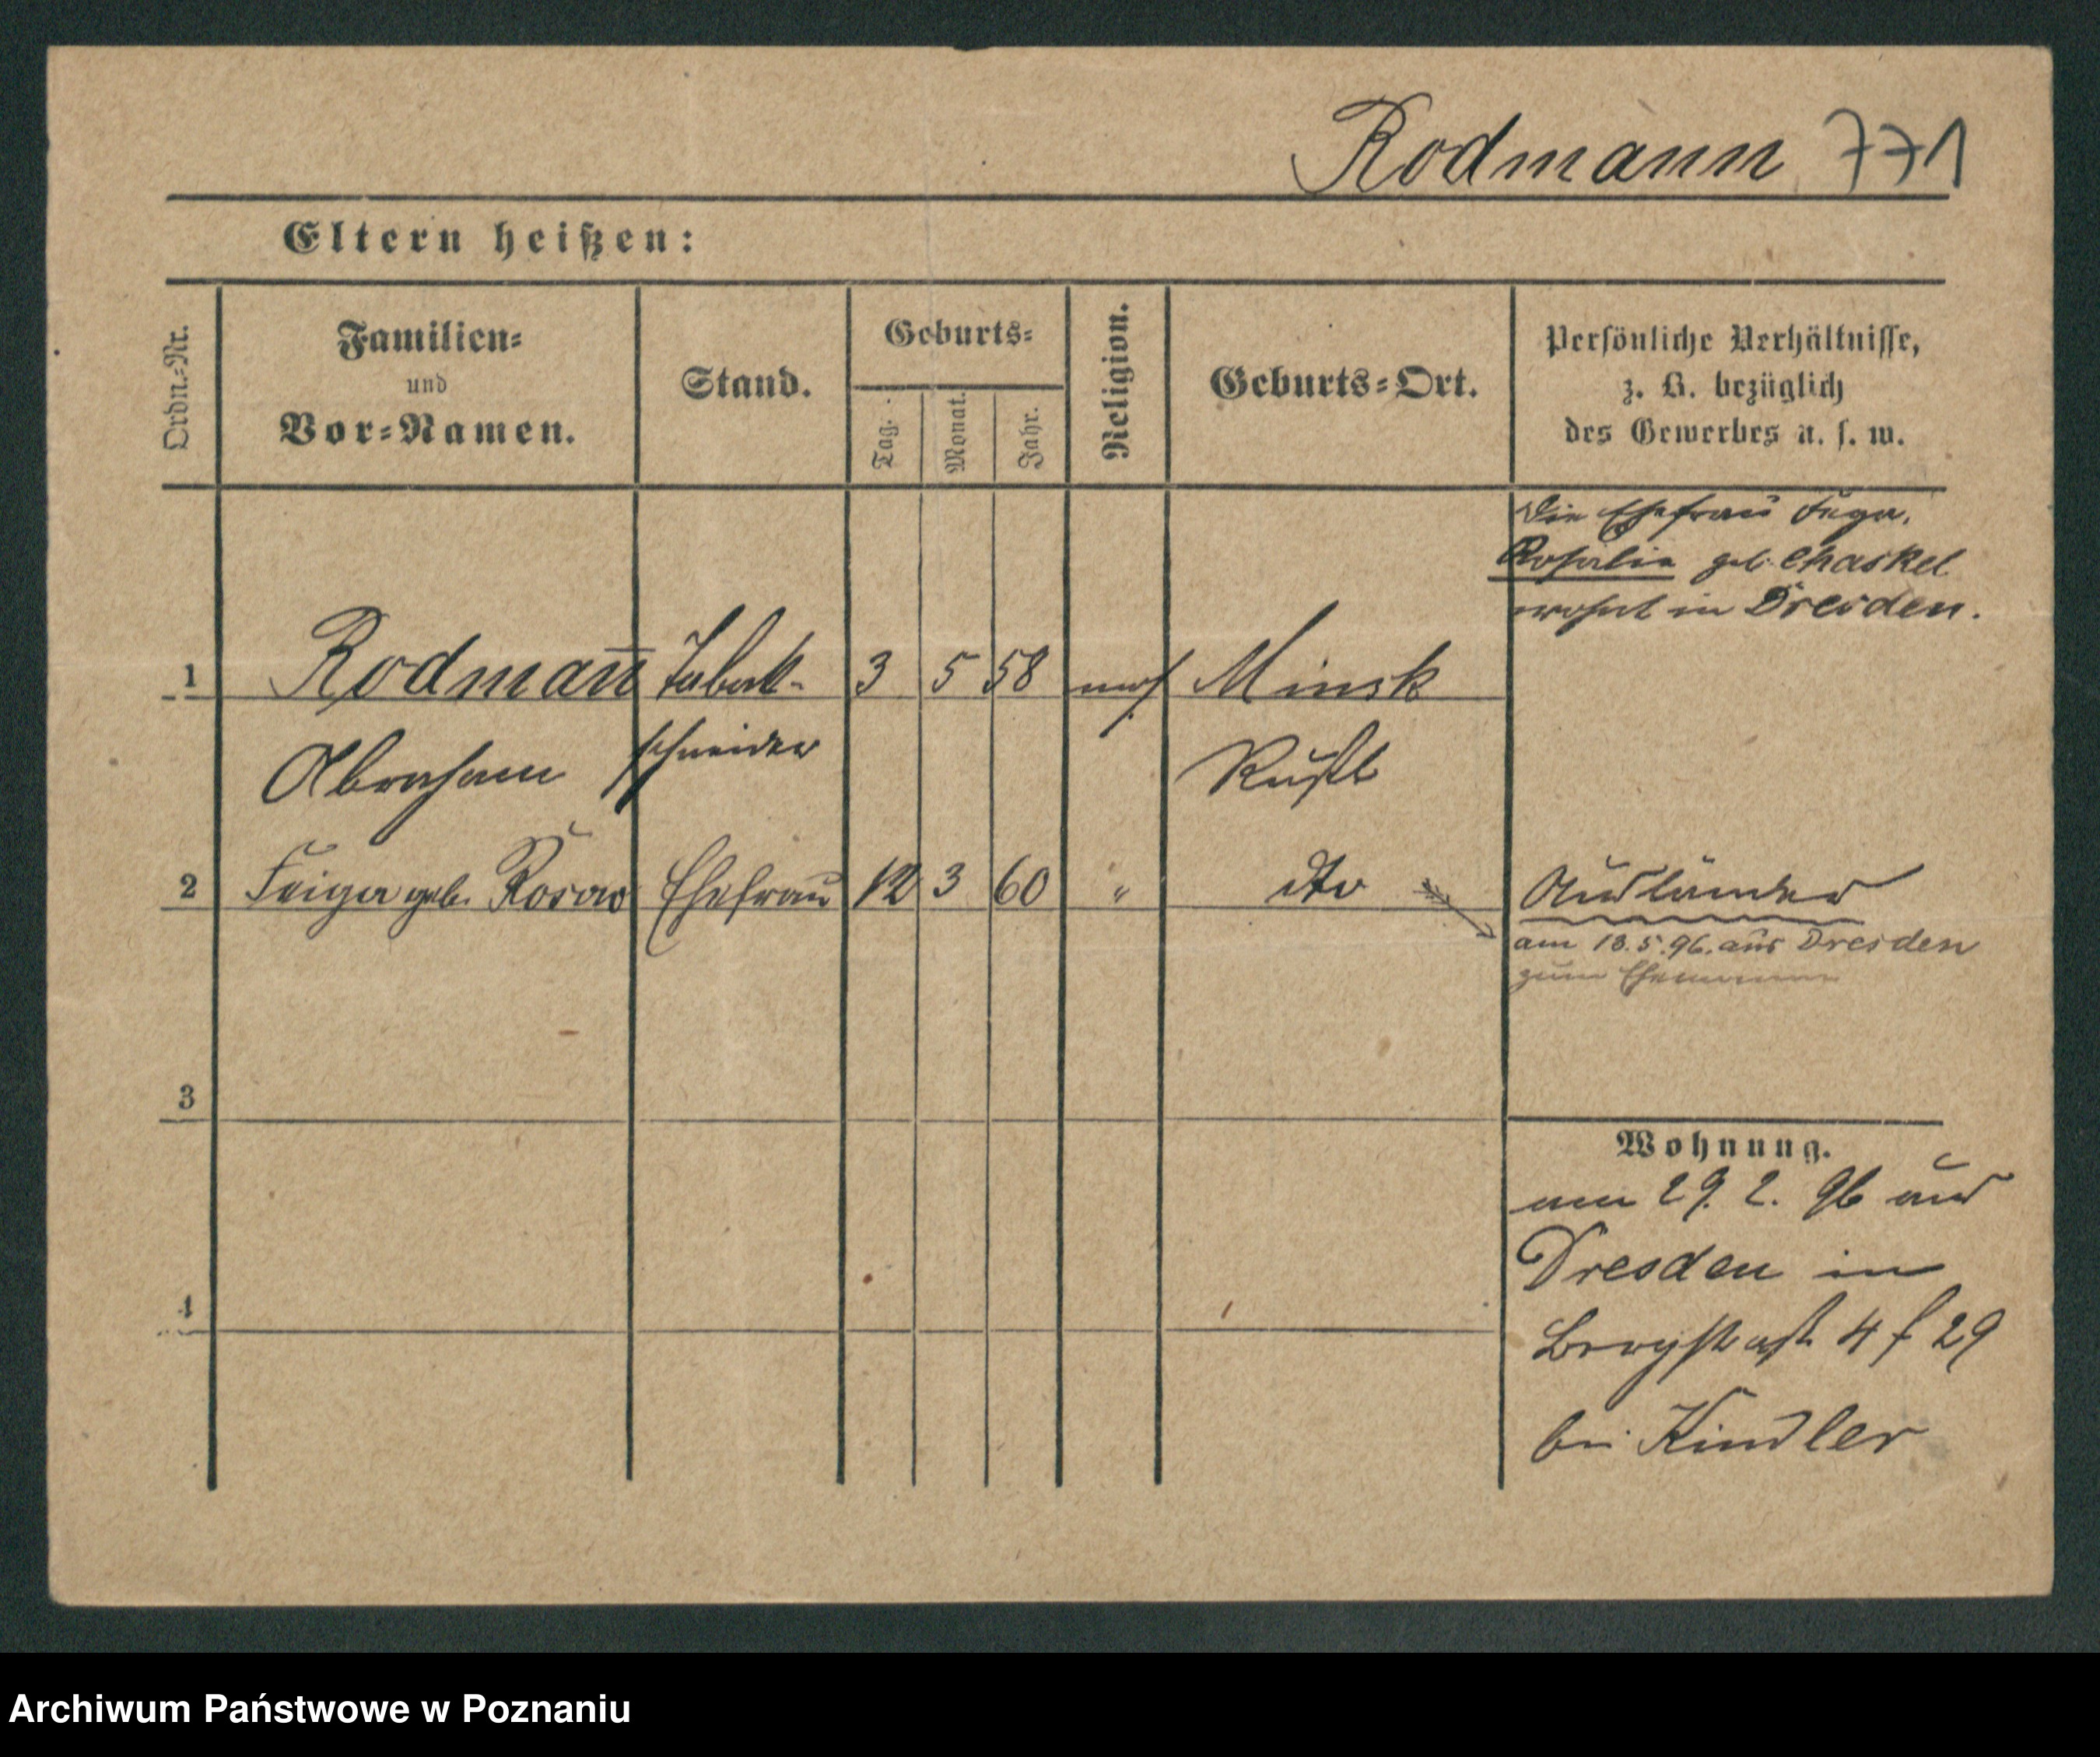 Rodmann 771
Eltern heißen:
Ordn.-Nr.
Familien-
und
Vor-Namen.
Stand.
Geburts-
Tag.
Monat.
Jahr.
Religion.
Geburts-Ort.
Persönliche Verhältnisse,
z. B. bezüglich
des Gewerbes u. s. w.
Die Ehefrau
Rosalie geb. Chaskel
wohnt in Dresden.
1 Rodman̅ Tabak- 3 5 58 mos Minsk
Abraham schneider Rußl
2 Feiga geb. Rosow Ehefrau 12 3 60 " dto Ausländer
am 13.5.96. aus Dresden
zum Ehemann
3
Wohnung.
am 29. 2. 96 aus
Dresden in
4
Bergstraße 4 f 29
bei Kindler
Archiwum Państwowe w Poznaniu